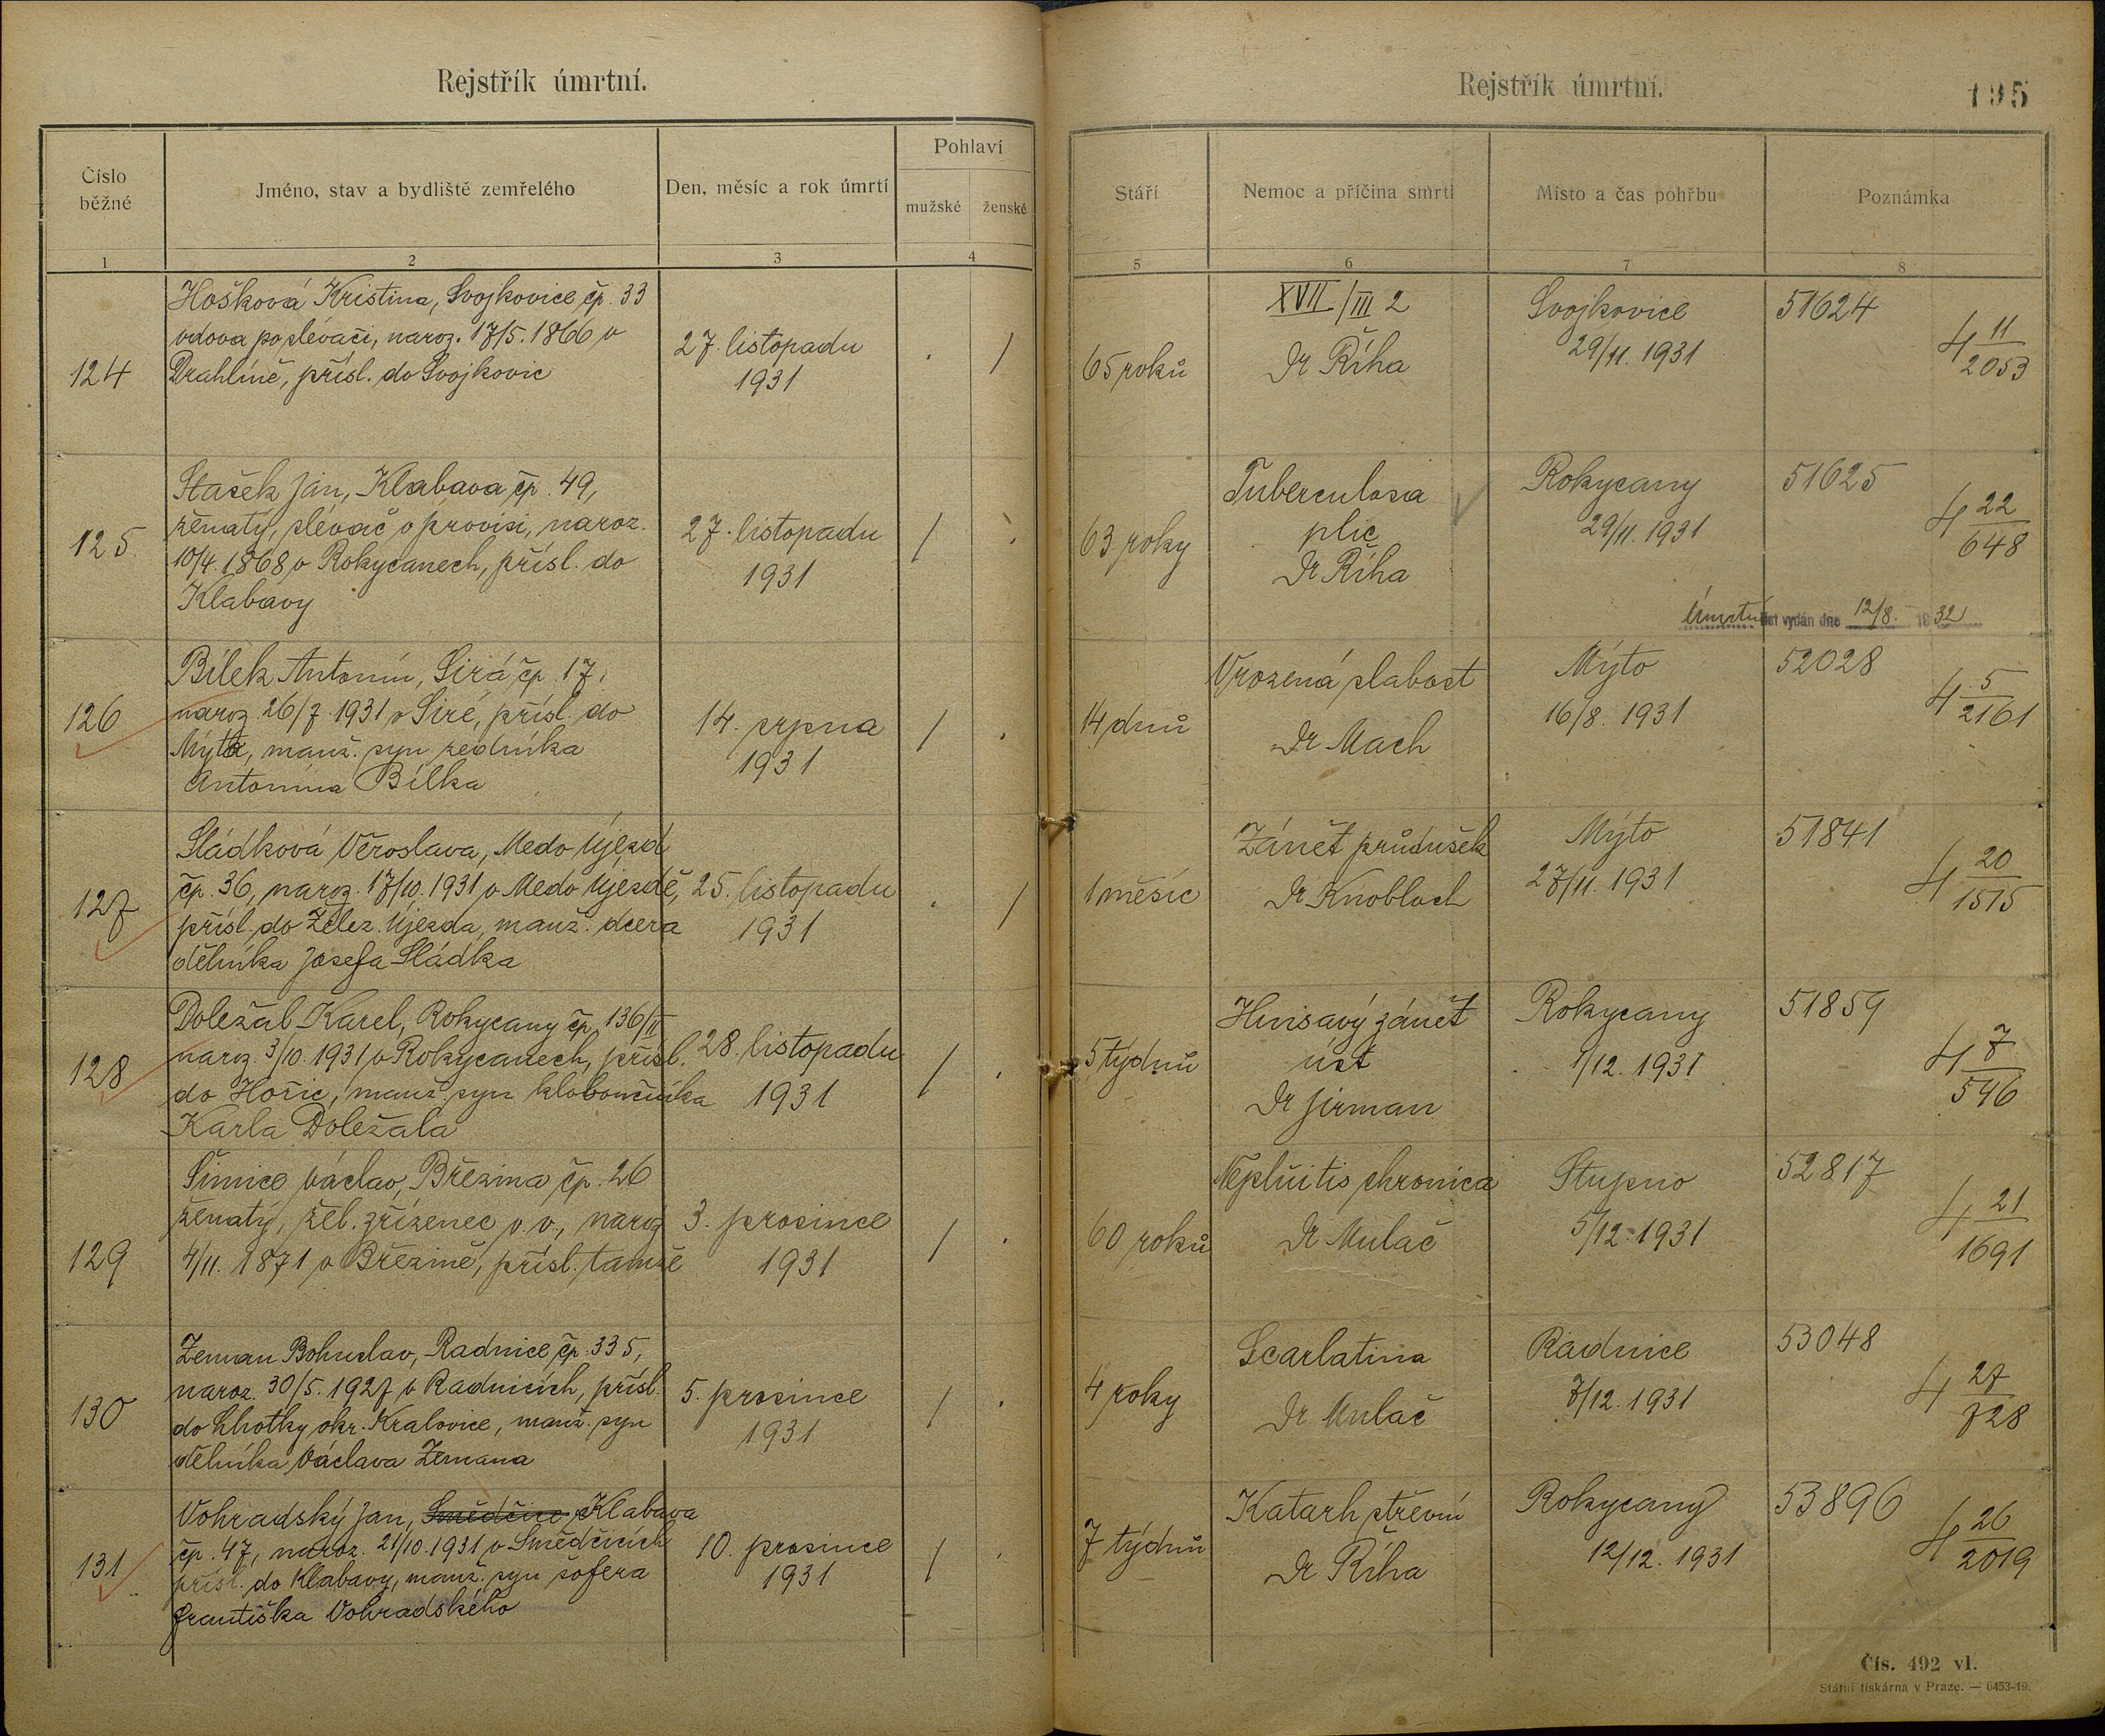 Rejstřík úmrtní.
Číslo běžné
Jméno, stav a bydliště zemřelého
Den, měsíc a rok úmrtí
Pohlaví
mužské ženské
1 2 3 4
124
Hošková Kristina, Svojkovice čp. 33
vdova po slévači, naroz. 17/5. 1866 v
Drahlíně, přísl. do Svojkovic
27. listopadu
1931
. /
125.
Stašek Jan, Klabava čp. 49,
ženatý, slévač o provisi, naroz.
10/4 1868 v Rokycanech, přísl. do
Klabavy
27. listopadu
1931
/ .
126
Bílek Antonín, Sirá čp. 17,
naroz. 26/7. 1931 v Siré, přísl. do
Mýta, manž. syn zedníka
Antonína Bílka
14. srpna
1931
/ .
127
Sládková Věroslava, Medo Újezd
čp. 36, naroz. 17/10. 1931 v Medo Újezdě,
přísl. do Želez. Újezda, manž. dcera
dělníka Josefa Sládka
25. listopadu
1931
. /
128
Doležal Karel, Rokycany čp. 136/II
naroz. 3/10. 1931 v Rokycanech, přísl.
do Hořic, manž. syn kloboučníka
Karla Doležala
28. listopadu
1931
/ .
129
Šimice Václav, Březina čp. 26
ženatý, žel. zřízenec v. v., naroz
4/11. 1871 v Březině, přísl. tamže
3. prosince
1931
/ .
130
Zeman Bohuslav, Radnice čp. 335,
naroz. 30/5. 1927 v Radnicích, přísl.
do Lhotky okr. Kralovice, manž. syn
dělníka Václava Zemana
5. prosince
1931
/ .
131
Vohradský Jan, Smědčice Klabava
čp. 47, naroz. 21/10. 1931 v Smědčicích
přísl. do Klabavy, manž. syn šoféra
Františka Vohradského
10. prosince
1931
/ .
Rejstřík úmrtní.
195
Stáří
Nemoc a příčina smrti
Místo a čas pohřbu
Poznámka
5 6 7 8
65 roků
XVII/III 2
Dr Říha
Svojkovice
29/11. 1931
51624
4 11/2053
63 roky
Tuberculosa
plic
Dr Říha
Rokycany
29/11. 1931
51625
4 22/648
Úmrtní list vydán dne 12/8. 1932
14 dnů
Vrozená slabost
Dr Mach
Mýto
16/8. 1931
52028
4 5/2161
1 měsíc
Zánět průdušek
Dr Knobloch
Mýto
27/11. 1931
51841
4 20/1515
5 týdnů
Hnisavý zánět
úst
Dr Jirman
Rokycany
1/12. 1931
51859
4 7/546
60 roků
Nephritis chronica
Dr Mulač
Stupno
5/12. 1931
52817
4 21/1691
4 roky
Scarlatina
Dr Mulač
Radnice
7/12. 1931
53048
4 27/728
7 týdnů
Katarh střevní
Dr Říha
Rokycany
12/12. 1931
53896
4 26/2019
Čís. 492 vl.
Státní tiskárna v Praze. — 6453-19.